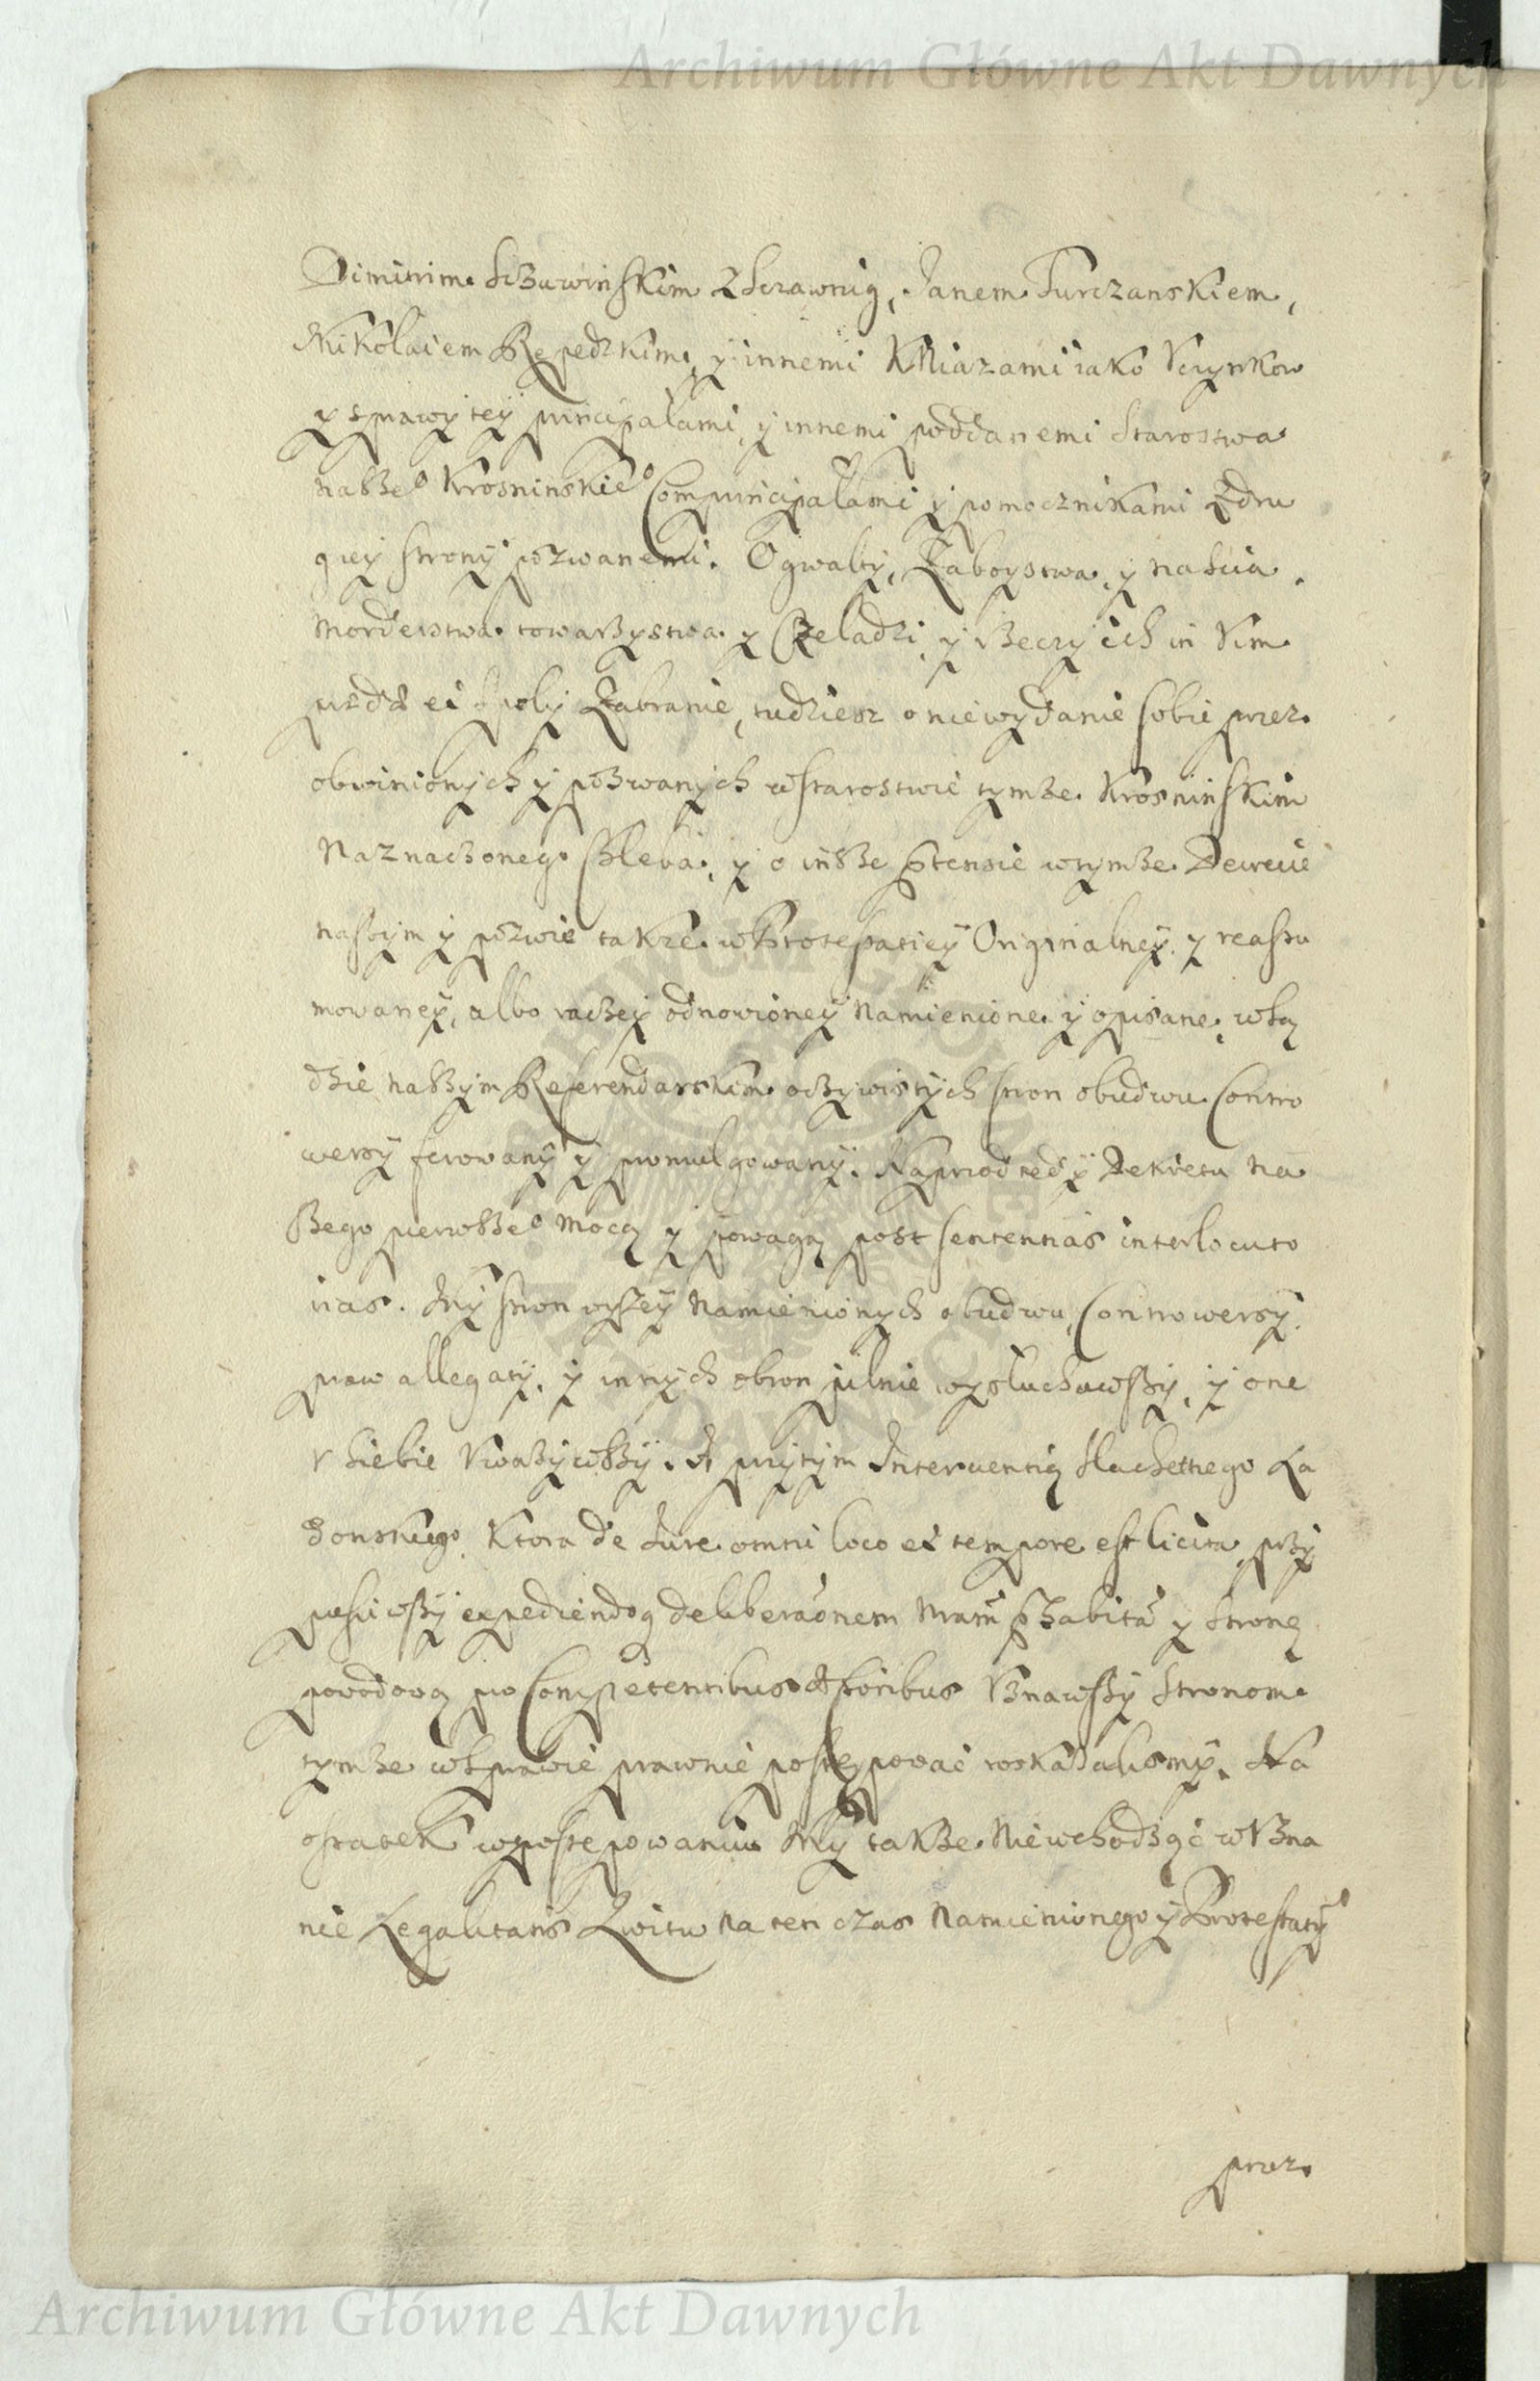 Archiwum Główne Akt Dawnych
Dimitrim Sczawinskim z Sczawnię, Janem Turczanskiem,
Mikołaiem Repedzkim, y innemi Kniazami iako Vczynkow
y sprawy tey principałami, y innemi poddanemi Starostwa
naszeo Krosninskieo Comprincipałami y pomocznikami z dru
giey strony pozwanemi. O gwałty, Zaboystwa, y naścia,
morderstwa towarzystwa y Czeladzi, y rzeczy ich in Vim
et społy Zabranie, tudziesz o niewydanie sobie przez
obwinionych y pozwanych w starostwie tymze Krosninskim
Naznaczonego Chleba, y o insze ptensie w tymze Decrecie
naszym y pozwie takze w Protestatiey Originalney y reassu
mowaney, albo raczey odnowioney Namienione y opisane, w Są
dzie naszym Referendarskim oczywistych stron obudwu Contro
wersy ferowany y promulgowany. Naprzod tedy Dekretu na
szego pierwszeo mocą y powagą post sententias interlocuto
rias. My stron wyszey Namienionych obudwu, Controwersy,
praw allegaty, y innych obron pilnie wysłuchawszy, y one
v siebie Vwazywszy. A przytym Interuentią Slachetnego La
donskiego, Ktora de Iure omni loco et tempore est licita, przy
pusciwszy expediendoq deliberaonem nram phabita y stronę
powodową pro Competentibus Actoribus Vznawszy stronom
tymze w sprawie prawnie postępowac roskazalismy. Na
ostatek w postepowaniu My takze Niewchodząc w Vzna
nie Legalitatis Qwitu na ten czas Namienionego y Protestaty
przez
Archiwum Główne Akt Dawnych